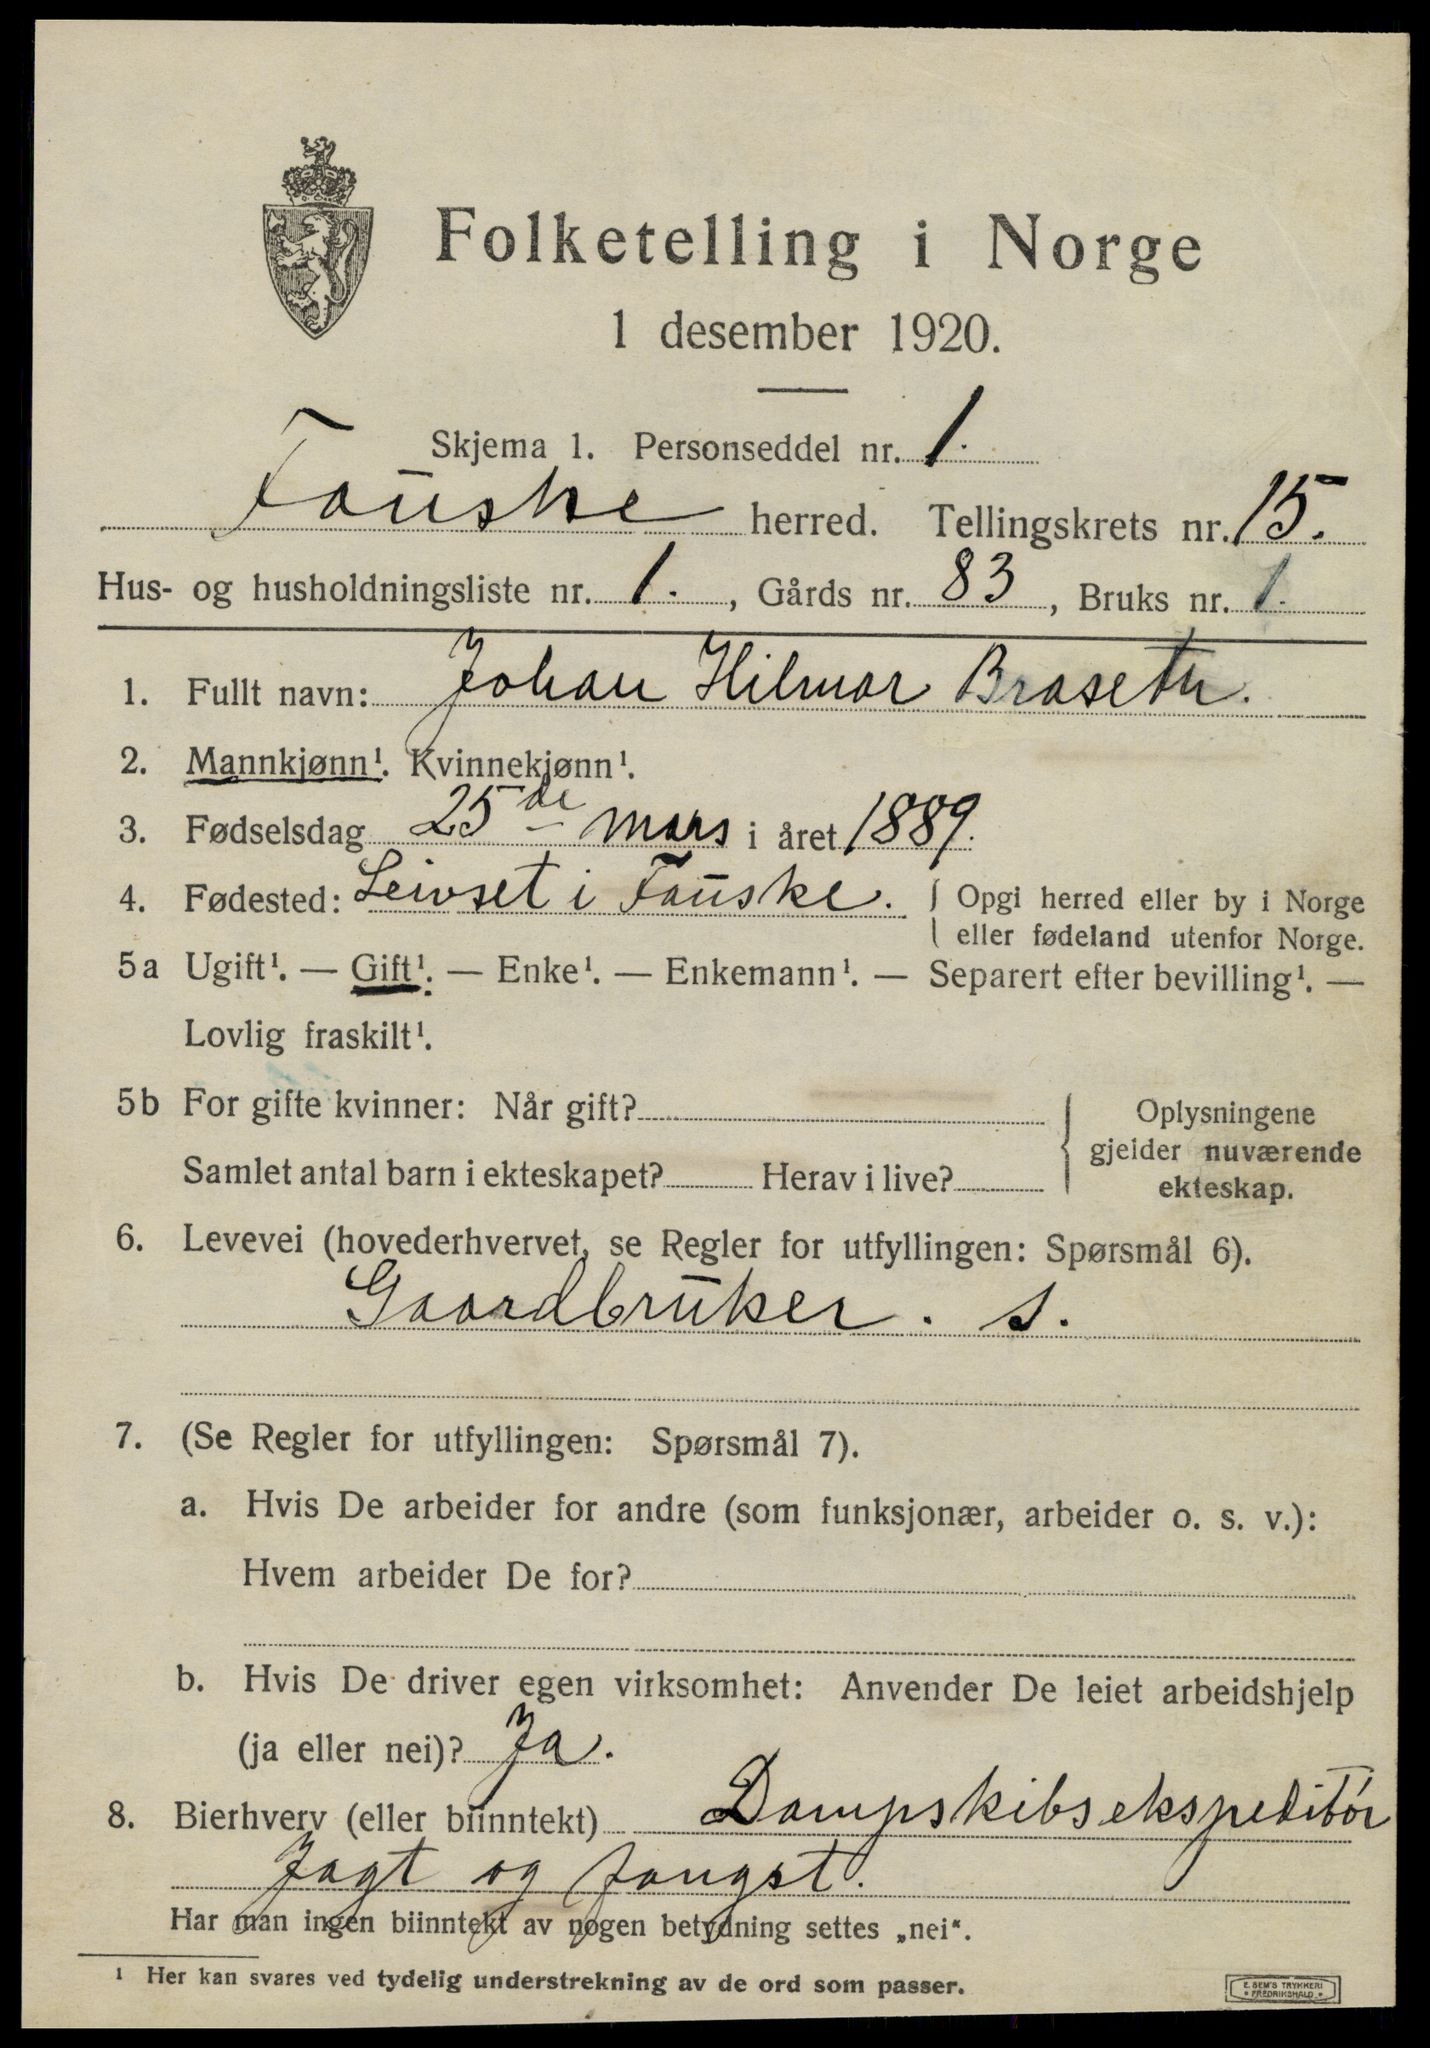 Folketelling i Norge
1 desember 1920.
Skjema 1. Personseddel nr. 1.
Fauske herred. Tellingskrets nr. 15.
Hus- og husholdningsliste nr. 1., Gårds nr. 83, Bruks nr. 1.
1. Fullt navn: Johan Hilmar Braseth.
2. Mannkjønn¹. Kvinnekjønn¹.
3. Fødselsdag 25de mars i året 1889.
4. Fødested: Leivset i Fauske. { Opgi herred eller by i Norge
eller fødeland utenfor Norge.
5a Ugift¹. — Gift¹. — Enke¹. — Enkemann¹. — Separert efter bevilling¹. —
Lovlig fraskilt¹.
5b For gifte kvinner: Når gift? { Oplysningene
gjelder nuværende
Samlet antal barn i ekteskapet? Herav i live? ekteskap.
6. Levevei (hovederhvervet, se Regler for utfyllingen: Spørsmål 6).
Gaardbruker. s.
7. (Se Regler for utfyllingen: Spørsmål 7).
a. Hvis De arbeider for andre (som funksjonær, arbeider o. s. v.):
Hvem arbeider De for?
b. Hvis De driver egen virksomhet: Anvender De leiet arbeidshjelp
(ja eller nei)? Ja.
8. Bierhverv (eller biinntekt) Dampskibsekspeditør
Jagt og fangst.
Har man ingen biinntekt av nogen betydning settes „nei“.
¹ Her kan svares ved tydelig understrekning av de ord som passer.
E. SEM'S TRYKKERI
• FREDRIKSHALD •